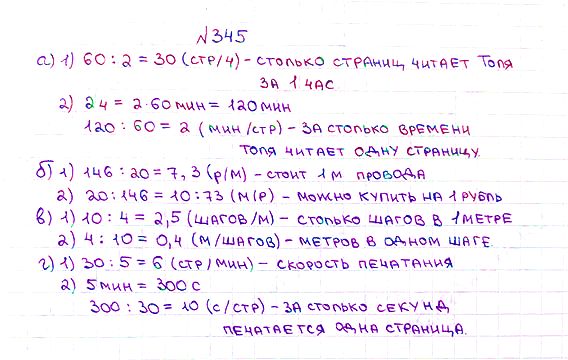 №345
а) 1) 60 : 2 = 30 (стр/ч) – столько страниц читает Толя
за 1 час
2) 2ч = 2·60 мин = 120 мин
120 : 60 = 2 (мин/стр) – за столько времени
Толя читает одну страницу.
б) 1) 146 : 20 = 7,3 (р/м) – стоит 1 м провода
2) 20 : 146 = 10 : 73 (м/р) – можно купить на 1 рубль
в) 1) 10 : 4 = 2,5 (шагов/м) – столько шагов в 1 метре
2) 4 : 10 = 0,4 (м/шагов) – метров в одном шаге
г) 1) 30 : 5 = 6 (стр/мин) – скорость печатания
2) 5 мин = 300 с
300 : 30 = 10 (с/стр) – за столько секунд
печатается одна страница.